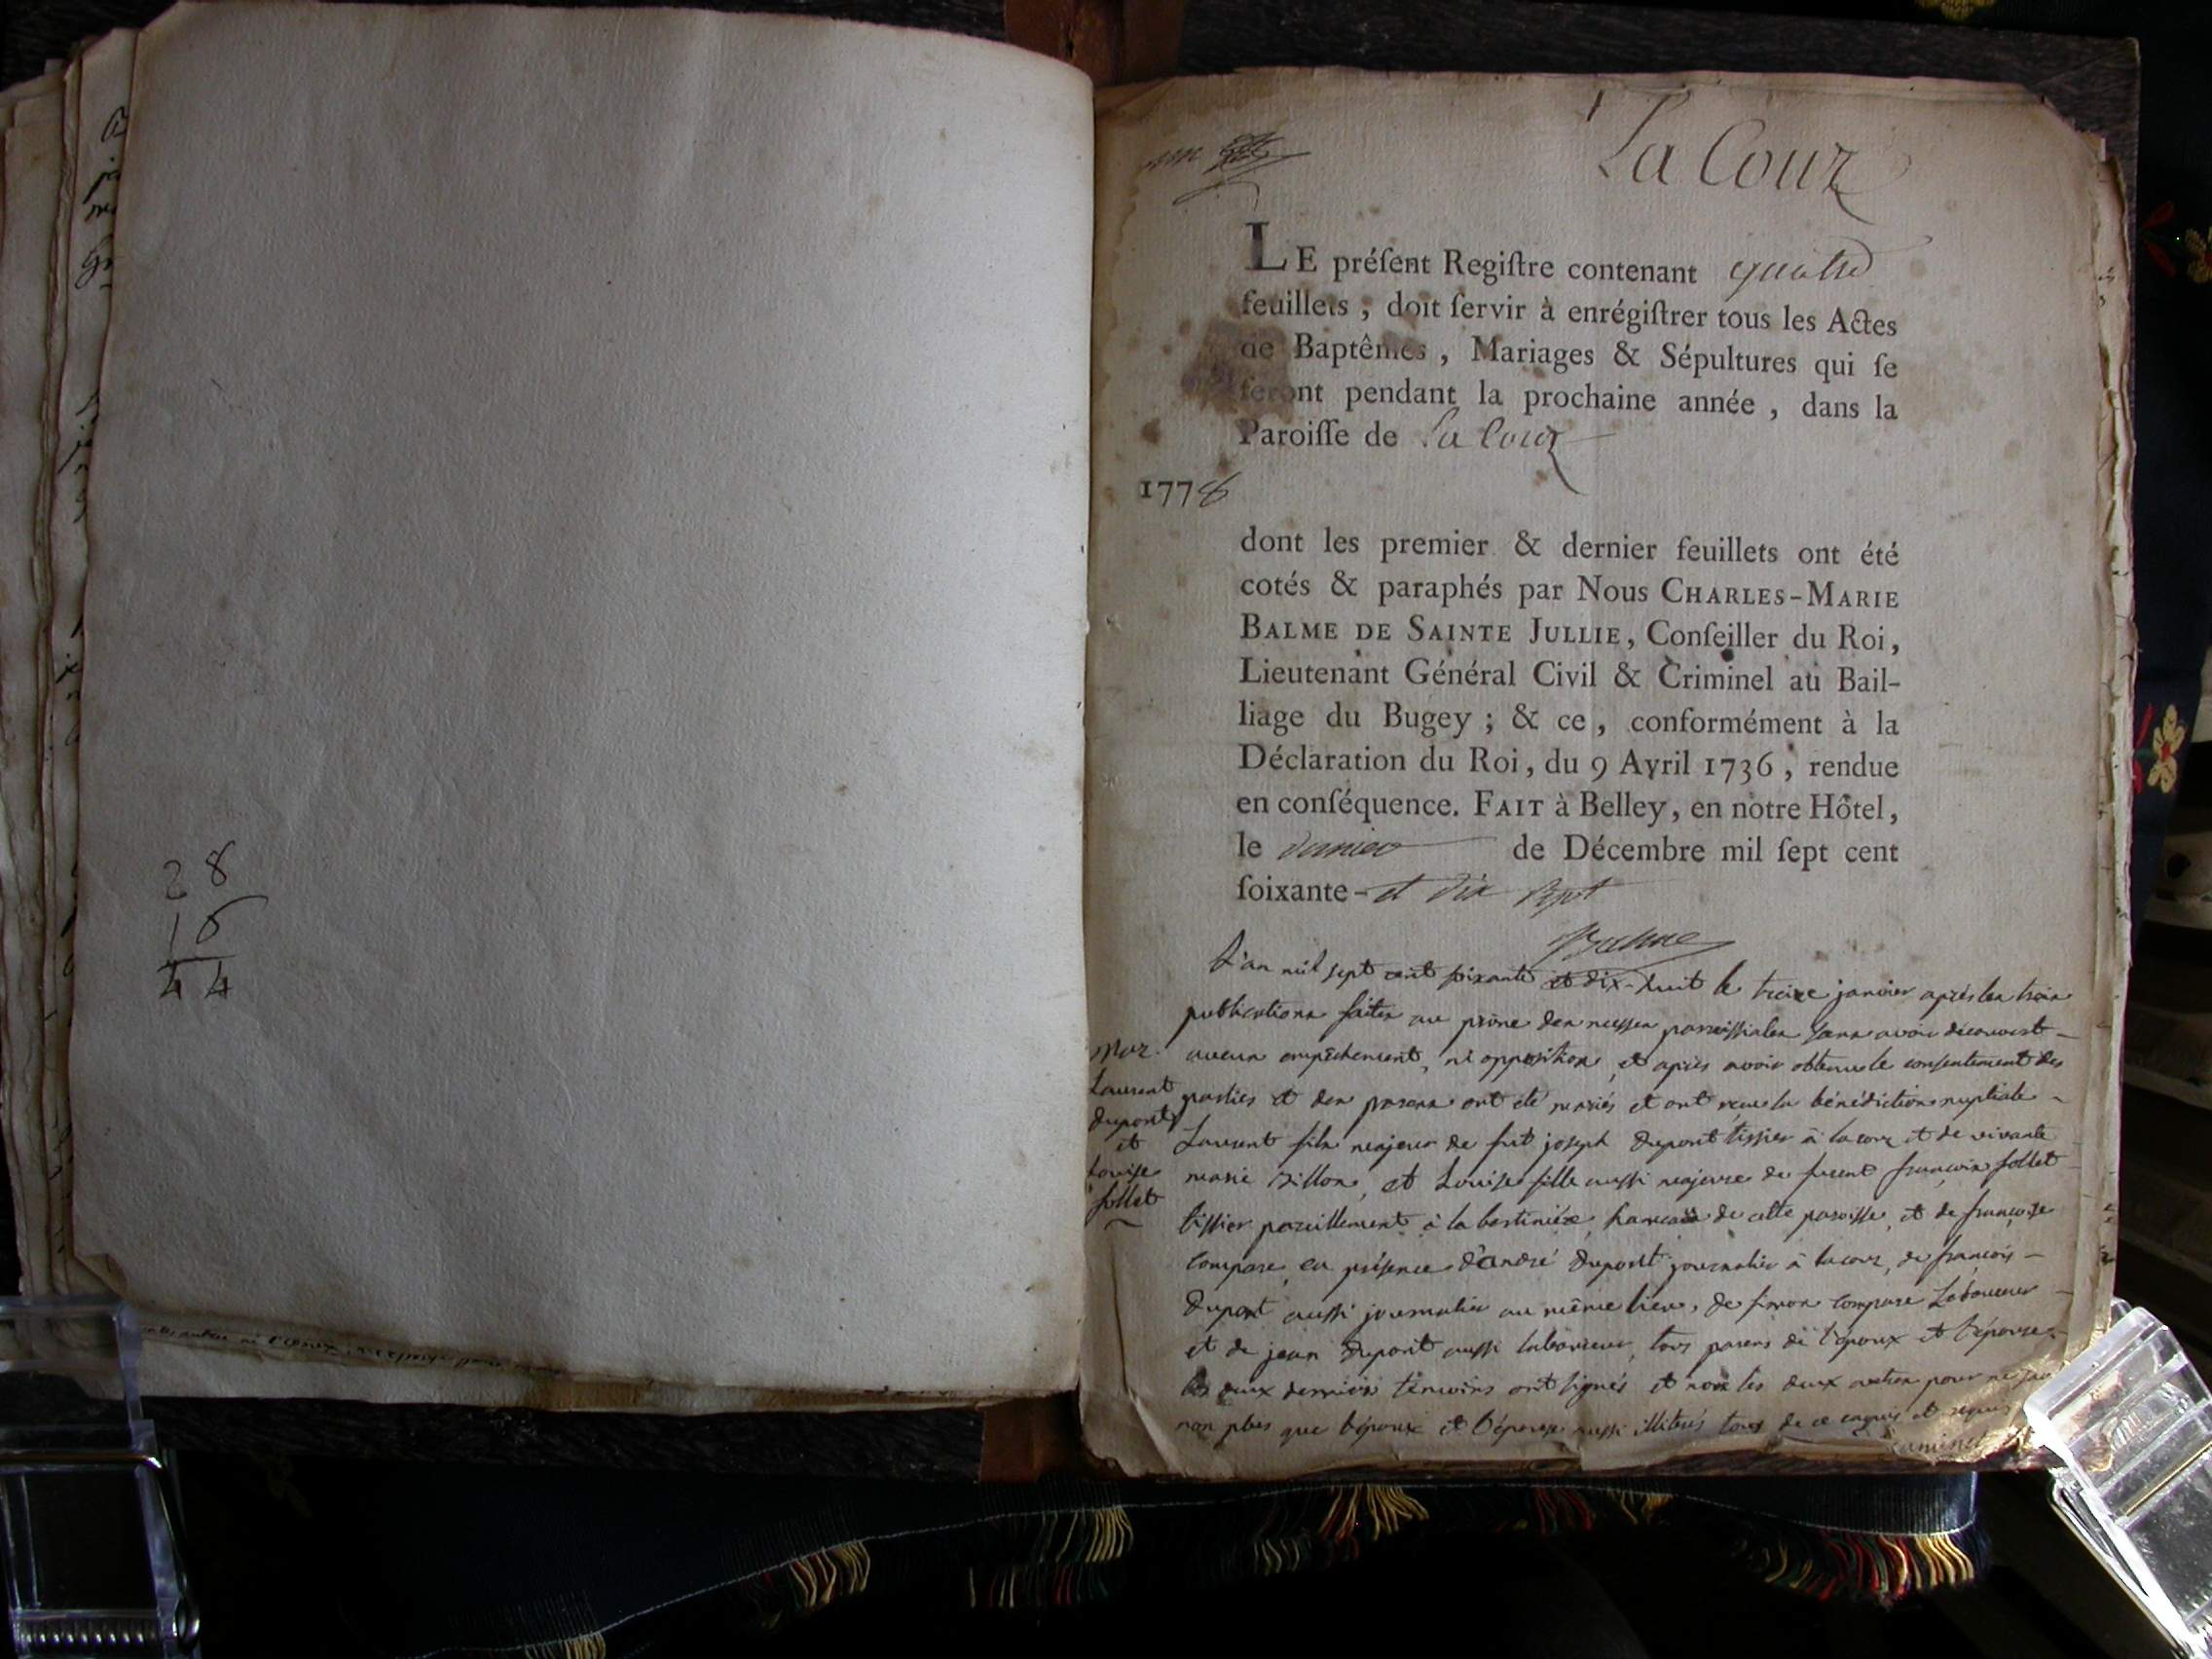 28
16
44
La Cour
LE préſent Regiſtre contenant quatre
feuillets ; doit ſervir à enrégiſtrer tous les Actes
de Baptêmes , Mariages & Sépultures qui ſe
feront pendant la prochaine année , dans la
Paroiſſe de La Cour
1778
dont les premier & dernier feuillets ont été
cotés & paraphés par Nous CHARLES-MARIE
BALME DE SAINTE JULLIE, Conſeiller du Roi,
Lieutenant Général Civil & Criminel au Bail-
liage du Bugey ; & ce , conformément à la
Déclaration du Roi, du 9 Avril 1736 , rendue
en conſéquence. FAIT à Belley, en notre Hôtel,
le dernier de Décembre mil ſept cent
ſoixante-et dix sept
Balme
L'an mil sept cent soixante et dix-huit le treize janvier après les trois
publications faites au prône des messes paroissiales sans avoir découvert
aucun empêchement, ni opposition, et après avoir obtenu le consentement des
parties et des parens ont été mariés et ont reçu la bénédiction nuptiale
Laurent fils majeur de fut joseph dupont tissier à lacour et de vivante
marie Billon, et Louise fille aussi majeure de furent françois follet
tissier pareillement à la bertinière, hameau de cette paroisse, et de françoise
compare, en présence d'andré dupont journalier à lacour, de françois
dupont aussi journalier au même lieu, de simon compare Laboureur
et de jean dupont aussi laboureur, tous parens de l'époux et l'épouse
les deux derniers témoins ont signés et non les deux autres pour ne
non plus que l'époux et l'épouse aussi illitérés tous de ce enquis et requis
Mar.
Laurent
dupont
et
Louise
follet